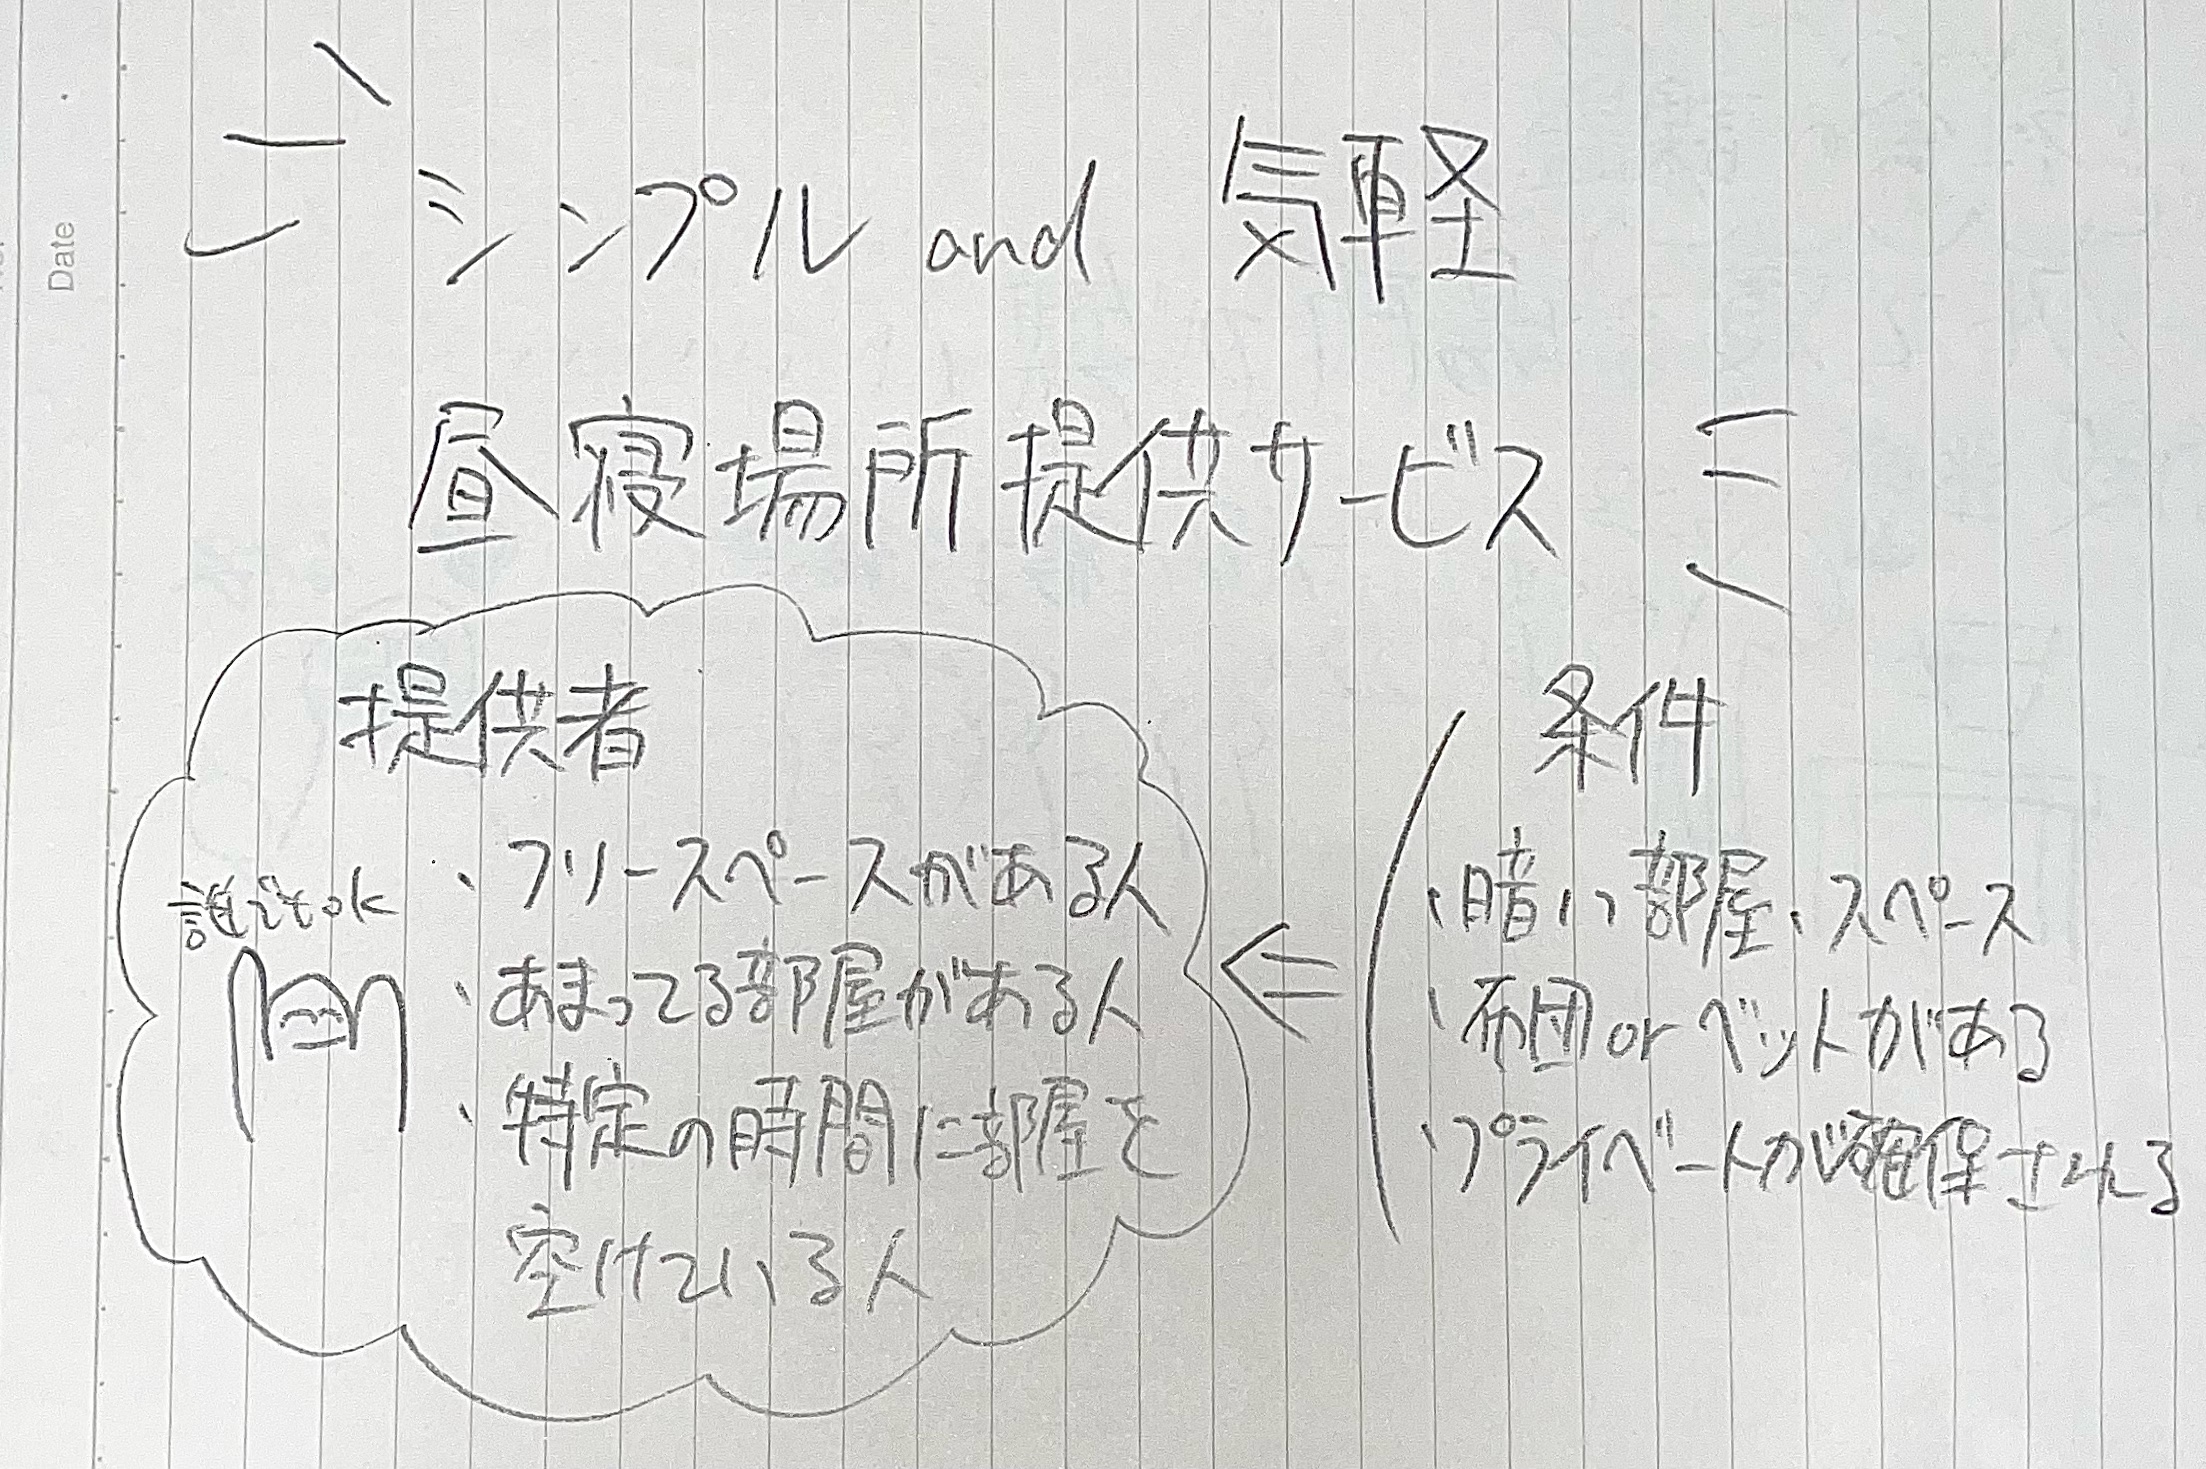 Date
シンプル and 気軽
昼寝場所提供サービス
提供者
誰でもok
・フリースペースがある人
・あまってる部屋がある人
・特定の時間に部屋を
空けている人
条件
・暗い部屋、スペース
・布団orベットがある
・プライベートが確保される